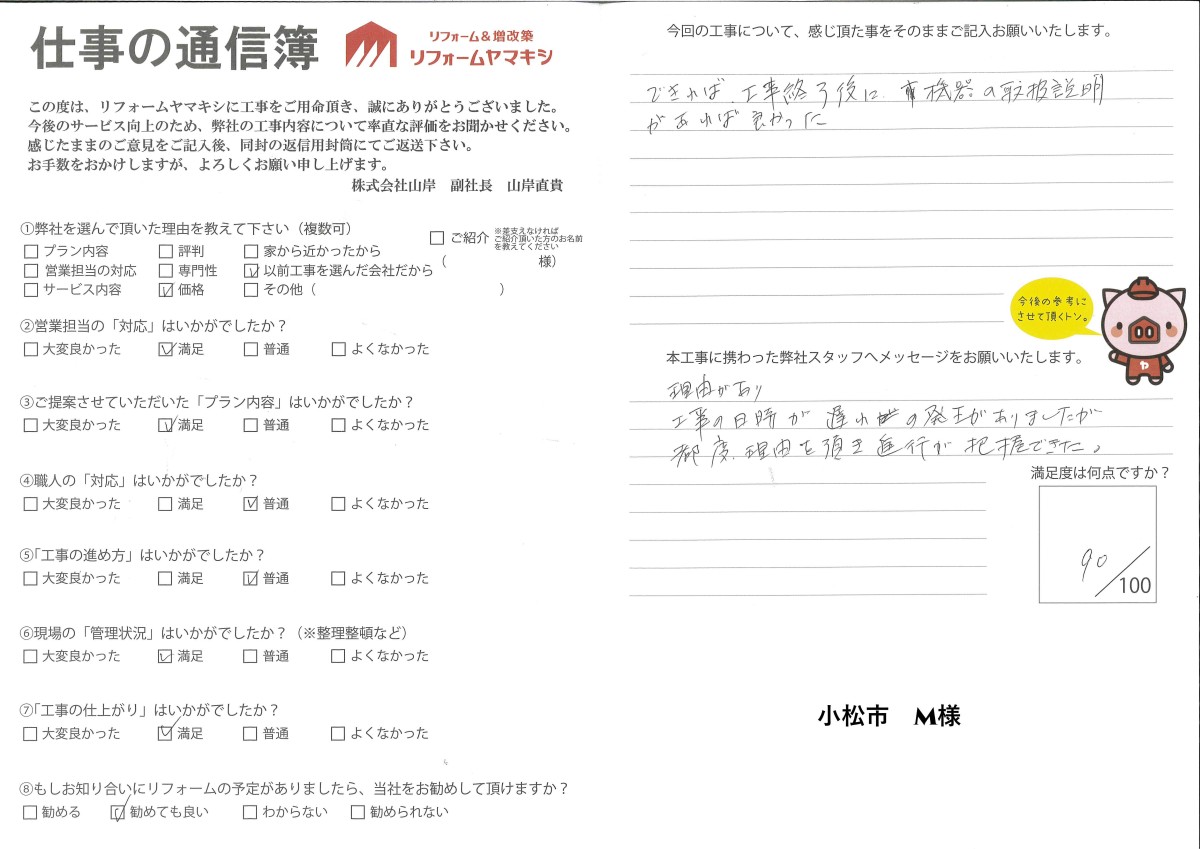 仕事の通信簿
リフォーム&増改築
リフォームヤマキシ
この度は、リフォームヤマキシに工事をご用命頂き、誠にありがとうございました。
今後のサービス向上のため、弊社の工事内容について率直な評価をお聞かせください。
感じたままのご意見をご記入後、同封の返信用封筒にてご返送下さい。
お手数をおかけしますが、よろしくお願い申し上げます。
株式会社山岸 副社長 山岸直貴
①弊社を選んで頂いた理由を教えて下さい（複数可）
□ プラン内容 □ 評判 □ 家から近かったから
□ 営業担当の対応 □ 専門性 ☑ 以前工事を選んだ会社だから
□ サービス内容 ☑ 価格 □ その他（ ）
□ ご紹介 ※差支えなければ
ご紹介頂いた方のお名前
を教えてください
（ 様）
②営業担当の「対応」はいかがでしたか？
□ 大変良かった ☑ 満足 □ 普通 □ よくなかった
③ご提案させていただいた「プラン内容」はいかがでしたか？
□ 大変良かった ☑ 満足 □ 普通 □ よくなかった
④職人の「対応」はいかがでしたか？
□ 大変良かった □ 満足 ☑ 普通 □ よくなかった
⑤「工事の進め方」はいかがでしたか？
□ 大変良かった □ 満足 ☑ 普通 □ よくなかった
⑥現場の「管理状況」はいかがでしたか？（※整理整頓など）
□ 大変良かった ☑ 満足 □ 普通 □ よくなかった
⑦「工事の仕上がり」はいかがでしたか？
□ 大変良かった ☑ 満足 □ 普通 □ よくなかった
⑧もしお知り合いにリフォームの予定がありましたら、当社をお勧めして頂けますか？
□ 勧める ☑ 勧めても良い □ わからない □ 勧められない
今回の工事について、感じ頂た事をそのままご記入お願いいたします。
できれば、工事終了後に 機器の取扱説明
があれば良かった
今後の参考に
させて頂くトン。
ヤ
本工事に携わった弊社スタッフへメッセージをお願いいたします。
理由があり
工事の日時が遅れの発生がありましたが
都度、理由を頂き進行が把握できた。
満足度は何点ですか？
90/100
小松市 M様